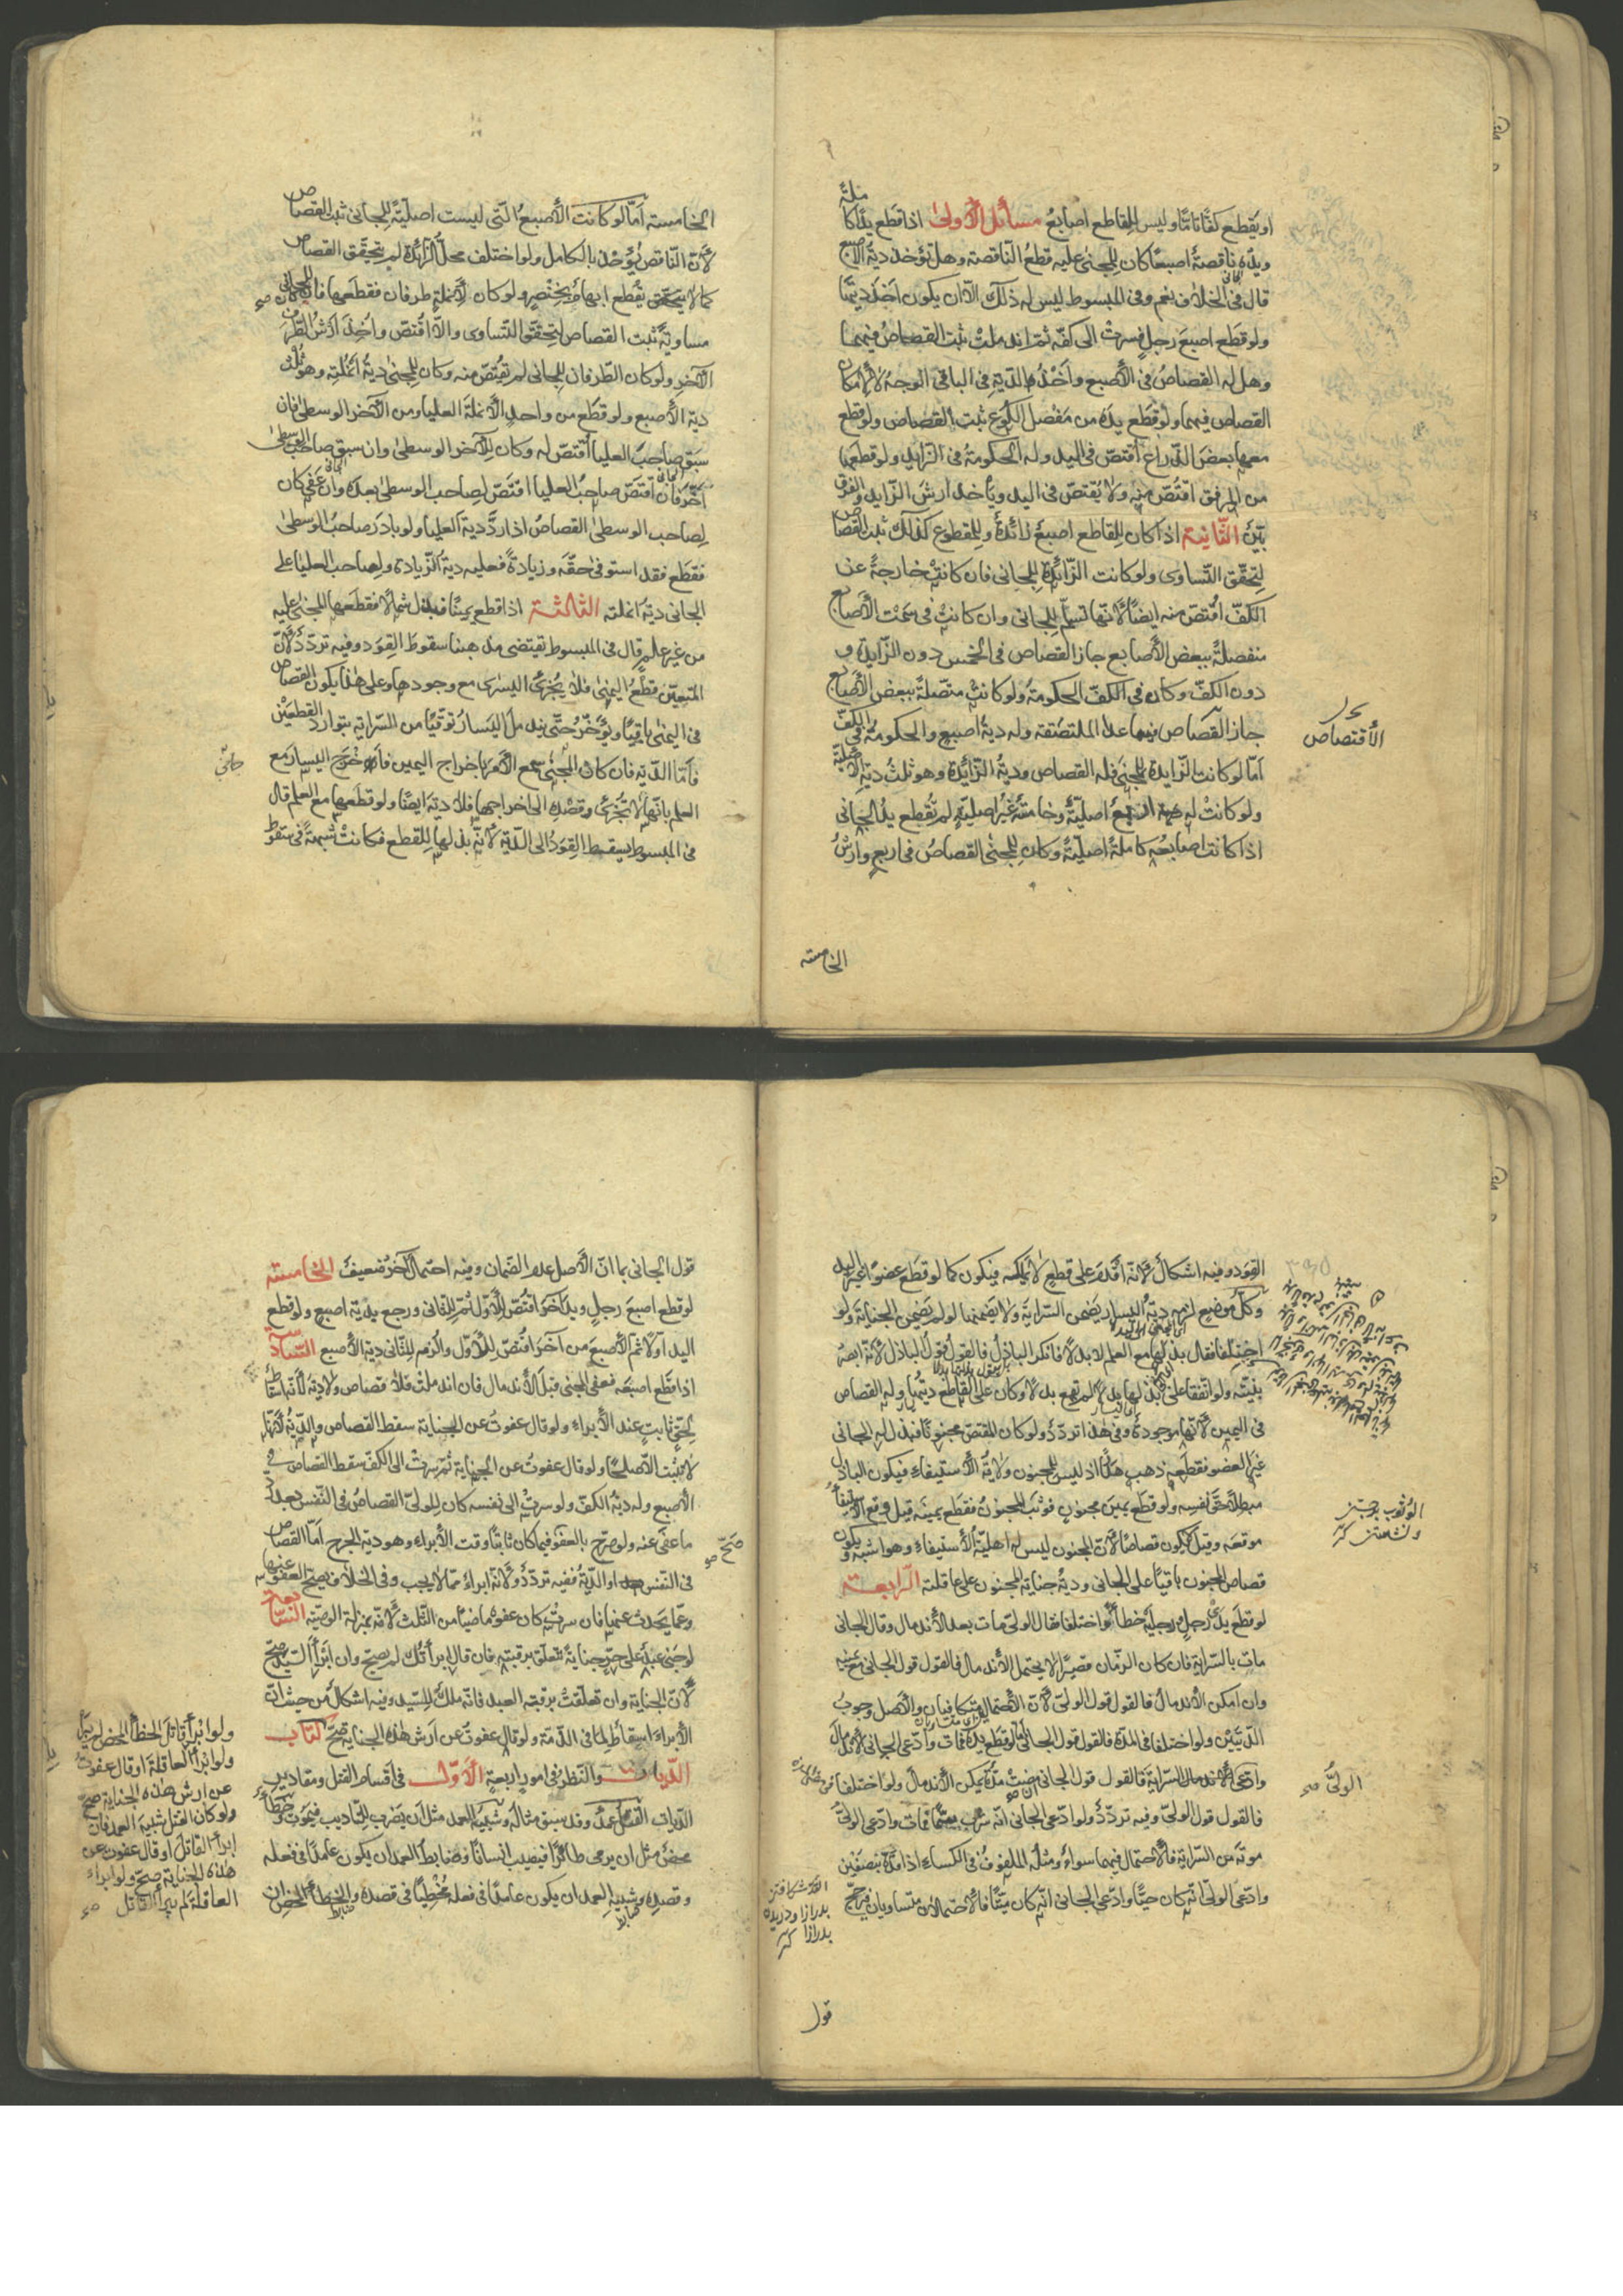 او يقطع كفّا تامّا وليس للقاطع اصابع مسائل الأولى اذا قطع يدًا كاملةً
ويده ناقصةٌ اصبعًا كان للمجنىّ عليه قطعُ النّاقصة وهل تؤخذ ديةُ الاصبع
قال فى الخلاف نعم وفى المبسوط ليس له ذلك الّا ان يكون اخذ ديتها
ولو قطع اصبعَ رجلٍ فسرتْ الى كفّه ثمّ اندملتْ ثبت القصاصُ فيهما
وهل له القصاصُ فى الأصبع واخذُ الدّيةِ فى الباقى الوجهُ لا لأمكان
القصاص فيهما ولو قطع يده من مَفْصل الكُوع ثبت القصاص ولو قطع
معها بعضَ الذّراع اقتصّ فى اليد وله الحكومةُ فى الزّايد ولو قطعها
من المرفق اقتُصّ منه ولا يُقتصّ فى اليد ويأخذ ارشَ الزّايد والفرق
بيّنٌ الثّانية اذا كان للقاطع اصبعٌ زائدةٌ وللمقطوع كذلك ثبت القصاص
لتحقّق التّساوى ولو كانت الزّائدة للجانى فان كانتْ خارجةً عن
الكفّ اقتُصّ منه ايضًا لأنّها تسلم للجانى وان كانتْ فى سَمْت الأصابع
منفصلةً ببعض الأصابع جاز القصاص فى الخمس دون الزّايدة و
دون الكفّ وكان فى الكفّ الحكومةُ ولو كانتْ متّصلةً ببعض الأصابع
جاز القصاص فيما عدا الملتصقة وله ديةُ اصبعٍ والحكومةُ فى الكفّ
امّا لو كانت الزّايدة للمجنىّ فله القصاص وديةُ الزّائدة وهو ثلثُ ديةِ الأصليّة
ولو كانتْ له اربعُ اصليّةٌ وخامسةٌ غيرُ اصليّةٍ لم تُقطع يدُ الجانى
اذا كانت اصابعُه كاملةً اصليّةً وكان للمجنىّ القصاصُ فى اربعٍ وارشُ
الأقتصاص
الخامسة
الخامسة امّا لو كانت الأصبعُ الّتى ليست اصليّةً للجانى ثبت القصاص
لأنّ النّاقص يُؤخذ بالكامل ولو اختلف محلّ الزّائدة لم يتحقّق القصاص
كما لا يقطع ابهامٌ بخِنْصِرٍ ولو كان لأنملةٍ طرفان فقطعها فان كان للجانى
مساويةٌ ثبت القصاص لتحقّق التّساوى والّا اقتُصّ واُخِذَ ارشُ الطّرف
الآخر ولو كان الطّرفان للجانى لم يُقتصّ منه وكان للمجنىّ ديةُ انملتِه وهو ثُلْثُ
دية الأصبع ولو قطع من واحدٍ الأنملةَ العليا ومن الآخر الوسطى فان
سبق صاحبُ العليا اُقتصّ له وكان للآخر الوسطى وان سبق صاحبُ الوسطى
اُخّر فان اقتصّ صاحبُ العليا اقتصّ لصاحب الوسطى بعده وان عفى كان
لصاحب الوسطى القصاصُ اذا ردّ ديةَ العليا ولو بادر صاحبُ الوسطى
فقطع فقد استوفى حقّه وزيادةً فعليه ديةُ الزّيادة ولصاحب العليا على
الجانى ديةُ انملته الثّالثة اذا قطع يمينًا فبذل شمالًا فقطعها المجنىّ عليه
من غير علمٍ قال فى المبسوط يقتضى مذهبنا سقوطَ القِوَد وفيه تردّدٌ لأنّ
المتعيّن قطعُ اليُمْنى فلا يُجْزئُ اليسرى مع وجودها وعلى هذا يكون القصاص
فى اليمنى باقيًا ويُؤخّر حتّى يندملَ اليسارُ توقّيًا من السّراية بتوارد القطعين
فامّا الدّية فان كان المجنىّ سمع الأمرَ باخراج اليمين فاخرج اليسارَ مع
العلم بانّها لا تُجْزئُ وقصدِه الى اخراجها فلا ديةَ ايضًا ولو قطعها مع العلم قال
فى المبسوط يسقط القِوَدُ الى الدّية لأنّه بذلها للقطع فكانتْ شبهةً فى سقوط
القود وفيه اشكالٌ لأنّه أقدَمَ على قطعٍ لا يملكه فيكون كما لو قطع عضوًا غيرَ اليد
وكلّ موضعٍ لزمه ديةُ اليسار يَضمن السّرايةَ ولا يضمنها لو لم يَضمن الجنايةَ ولو
اختلفا فقال بذلتَها مع العلم لا بدلًا فانكر الباذلُ فالقولُ قولُ الباذل لأنّه ابصر
بنيّته ولو اتّفقا على بذلها بدلًا لم تقع بدلًا وكان على القاطع ديتُها وله القصاص
فى اليمين لأنّها موجودةٌ وفى هذا تردّدٌ ولو كان المقتصّ مجنونًا فبذل له الجانى
غيرَ العضو فقطعه ذهب هدرًا اذ ليس للمجنون ولايةُ الأستيفاء فيكون الباذلُ
مبطلًا حقّ نفسِه ولو قطع يمينَ مجنونٍ فوثبَ المجنونُ فقطع يمينَه قيل وقع الأستيفاءُ
موقعَه وقيل لا يكون قصاصًا لأنّ المجنون ليس له اهليّةُ الأستيفاء وهو اشبهُ ويكون
قصاص المجنون باقيًا على الجانى وديةُ جناية المجنون على عاقلته الرّابعة
لو قطع يدَىْ رجلٍ ورجليه خطأً واختلفا فقال الولىّ مات بعد الأندمال وقال الجانى
مات بالسّراية فان كان الزّمان قصيرًا لا يحتمل الأندمال فالقول قول الجانى مع يمينه
وان امكن الأندمالُ فالقول قول الولىّ لأنّ الأحتمالين متكافيان والأصل وجوبُ
الدّيتين ولو اختلفا فى المدّة فالقول قول الجانى امّا لو قطع يدَه فمات وادّعى الجانى الأندمالَ
وادّعى السّرايةَ فالقول قول الجانى ان مضتْ مدّةٌ يمكن الأندمالُ ولو اختلفا
فالقول قول الولىّ وفيه تردّدٌ ولو ادّعى الجانى انّه شرب سمًّا فمات وادّعى الولىّ
موته من السّراية فالأحتمال فيهما سواءٌ ومثلُه الملفوفُ فى الكساء اذا قدّه بنصفين
وادّعى الولىّ انّه كان حيًّا وادّعى الجانى انّه كان ميّتًا فالأحتمالان متساويان فيرجّح
الوثوب برجستن
الولىّ صح
قول
قول الجانى بما انّ الأصل عدم الضّمان وفيه احتمالٌ آخرُ ضعيفٌ الخامسة
لو قطع اصبعَ رجلٍ ويدَ آخرَ اقتُصّ للأوّل ثمّ للثّانى ورجع بدية اصبعٍ ولو قطع
اليد اوّلًا ثمّ الأصبع من آخرَ اقتُصّ للأوّل واُلزم للثّانى دية الأصبع السّادسة
اذا قطع اصبعَه فعفى المجنىّ قبل الأندمال فان اندملتْ فلا قصاص ولا ديةَ لأنّه اسقاطٌ
لحقٍّ ثابتٍ عند الأبراء ولو قال عفوتُ عن الجناية سقط القصاص والدّيةُ لأنّها
لا تثبت الّا صلحًا ولو قال عفوتُ عن الجناية ثمّ سرتْ الى الكفّ سقط القصاص فى
الأصبع وله ديةُ الكفّ ولو سرتْ الى نفسه كان للولىّ القصاصُ فى النّفس بعد ردّ
ما عفى عنه ولو صرّح بالعفو فيما كان ثابتًا وقت الأبراء وهو دية الجرح امّا القصاص
فى النّفس او الدّيةُ ففيه تردّدٌ ولأنّه ابراءٌ ممّا لا يجب وفى الخلاف يصحّ العفوُ عنها
وعمّا يَحدث عنها فان سرتْ كان عفوُه ماضيًا من الثّلث لأنّه بمنزلة الوصيّة السّابعة
لو جنى عبدٌ على حرٍّ جنايةً تتعلّق برقبته فان قال ابرأتُك لم يصحّ وان ابرأ السّيّدَ صحّ
لأنّ الجناية وان تعلّقتْ برقبة العبد فانّه ملكٌ للسّيّد وفيه اشكالٌ من حيث انّ
الأبراءَ اسقاطٌ لما فى الذّمّة ولو قال عفوتُ عن ارش هذه الجناية صحّ كتاب
الدّيات والنّظر فى امورٍ اربعةٍ الأوّل فى اقسام القتل ومقادير
الدّيات القتل عمدٌ وقد سبق مثالُه وشبيهُ العمد مثلُ ان يضرب للتّأديب فيموتَ وخطأٌ
محضٌ مثل ان يرمى طائرًا فيصيب انسانًا وضابط العمد ان يكون عامدًا فى فعله
وقصدِه وشبيهِ العمد ان يكون عامدًا فى فعله مُخْطِئًا فى قصده والخطأ المحض ان
صحّ
ولو ابرأ قاتلَ الخطأ المحض لم يبرأ
ولو ابرأ العاقلةَ او قال عفوت
عن ارش هذه الجناية صحّ
ولو كان القتل شبيهَ العمد فان
ابرأ القاتلَ او قال عفوت عن
هذه الجناية صحّ ولو ابرأ
العاقلةَ لم يبرأ القاتل صح